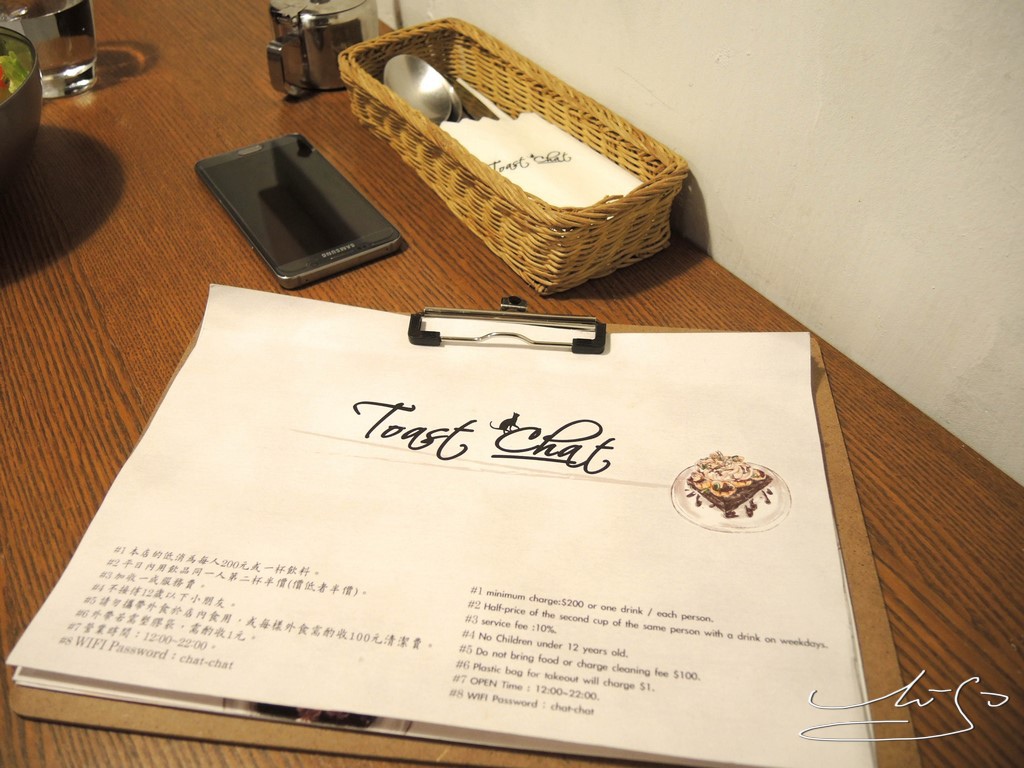 Toast Chat
SAMSUNG
Toast Chat
#1 本店的低消為每人200元或一杯飲料。
#2 平日內用飲品同一人第二杯半價(價低者半價)。
#3 加收一成服務費。
#4 不接待12歲以下小朋友。
#5 請勿攜帶外食於店內食用，或每樣外食需酌收100元清潔費。
#6 外帶若需塑膠袋，需酌收1元。
#7 營業時間：12:00~22:00。
#8 WIFI Password：chat-chat
#1 minimum charge:$200 or one drink / each person.
#2 Half-price of the second cup of the same person with a drink on weekdays.
#3 service fee :10%.
#4 No Children under 12 years old.
#5 Do not bring food or charge cleaning fee $100.
#6 Plastic bag for takeout will charge $1.
#7 OPEN Time : 12:00~22:00.
#8 WIFI Password : chat-chat